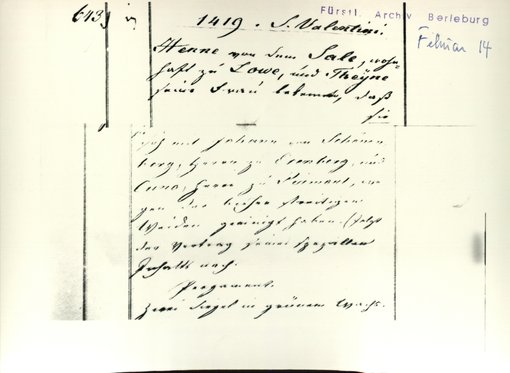 643 in 1419. S. Valentini.
Fürstl. Archiv Berleburg
Februar 14
Henne von dem Sale, wohn-
haft zu Lowe, und Theyne
seine Frau bekennen, daß
sie
sich mit Johann von Schönen
berg, Herrn zu und
Cuno, Herr zu Pirmont, we
gen des bisher streitigen
Weiden geeinigt haben. (folgt
der Vertrag seines speziellen
Inhalts nach.
Pergament.
Zwei Siegel in grünem Wachs.